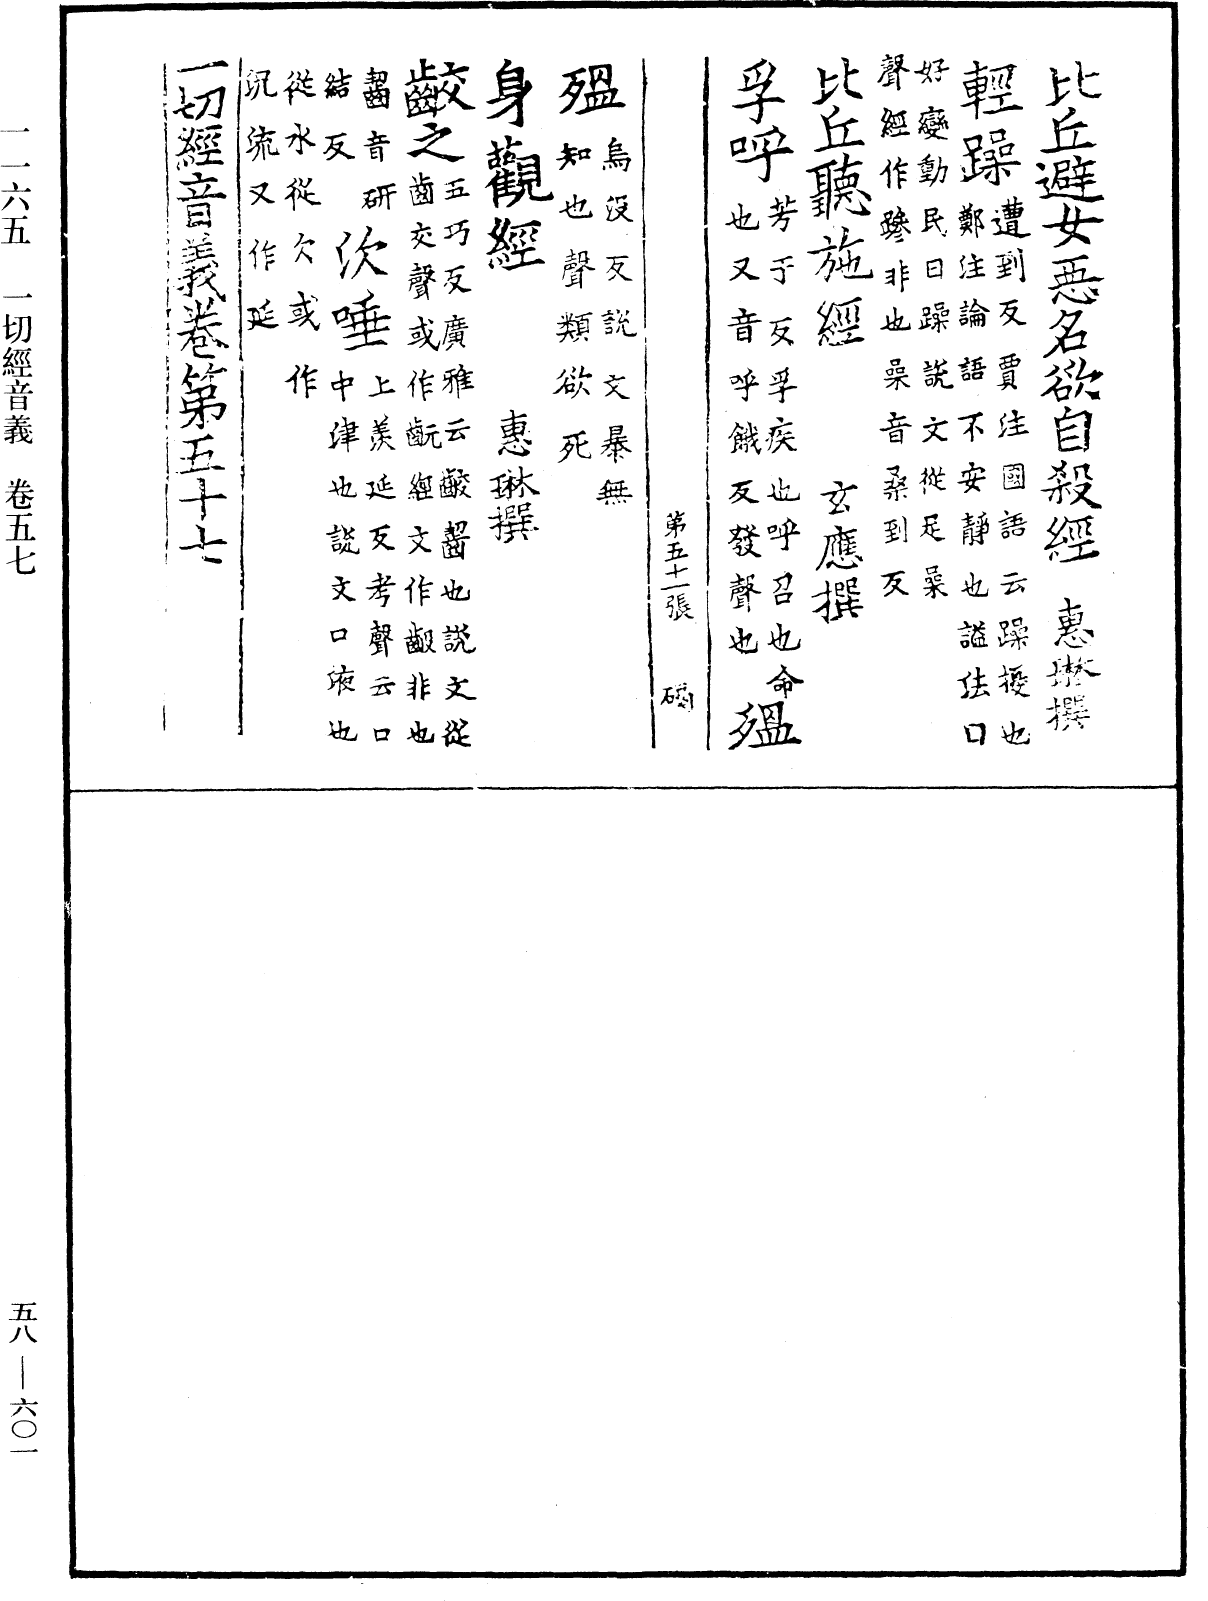 比丘避女惡名欲自殺經　惠琳撰
輕躁遭到反賈注國語云躁擾也
鄭注論語不安靜也謚法曰
好變動民曰躁說文從足喿
聲經作蹘非也喿音桑到反
比丘聽施經　玄應撰
孚呼芳于反孚疾也呼召也命
也又音呼餓反發聲也　殟
第五十一張　碣
殟烏沒反說文暴無
知也聲類欲死
身觀經　惠琳撰
齩之五巧反廣雅云齩齧也說文從
齒交聲或作䶧經文作齩非也
齧音研
結反　㳄唾上羨延反考聲云口
中津也說文口液也
從水從欠或作
㳄流又作延
一切經音義卷第五十七
一一六五　一切經音義　卷五七
五八—六〇一